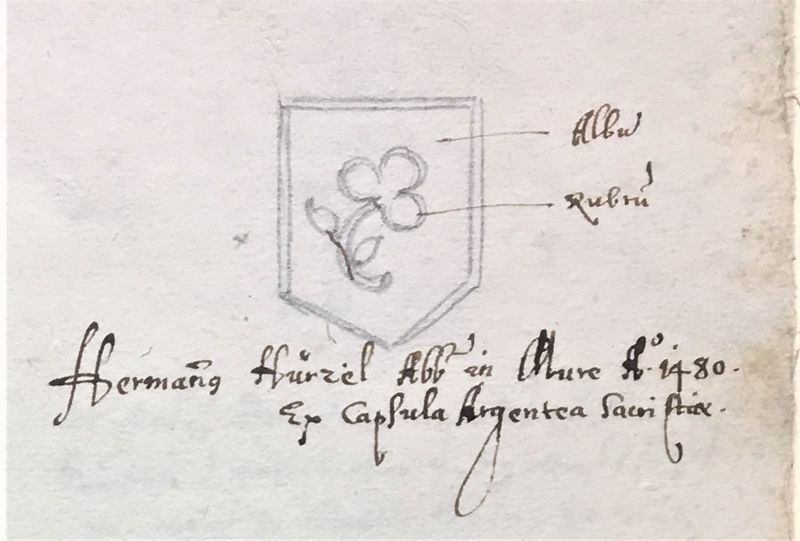 Albũ
Rubrũ
Hermañus Hürzel Abb in Mure A°. 1480.
Ex Capsula Argentea Sacristiæ.